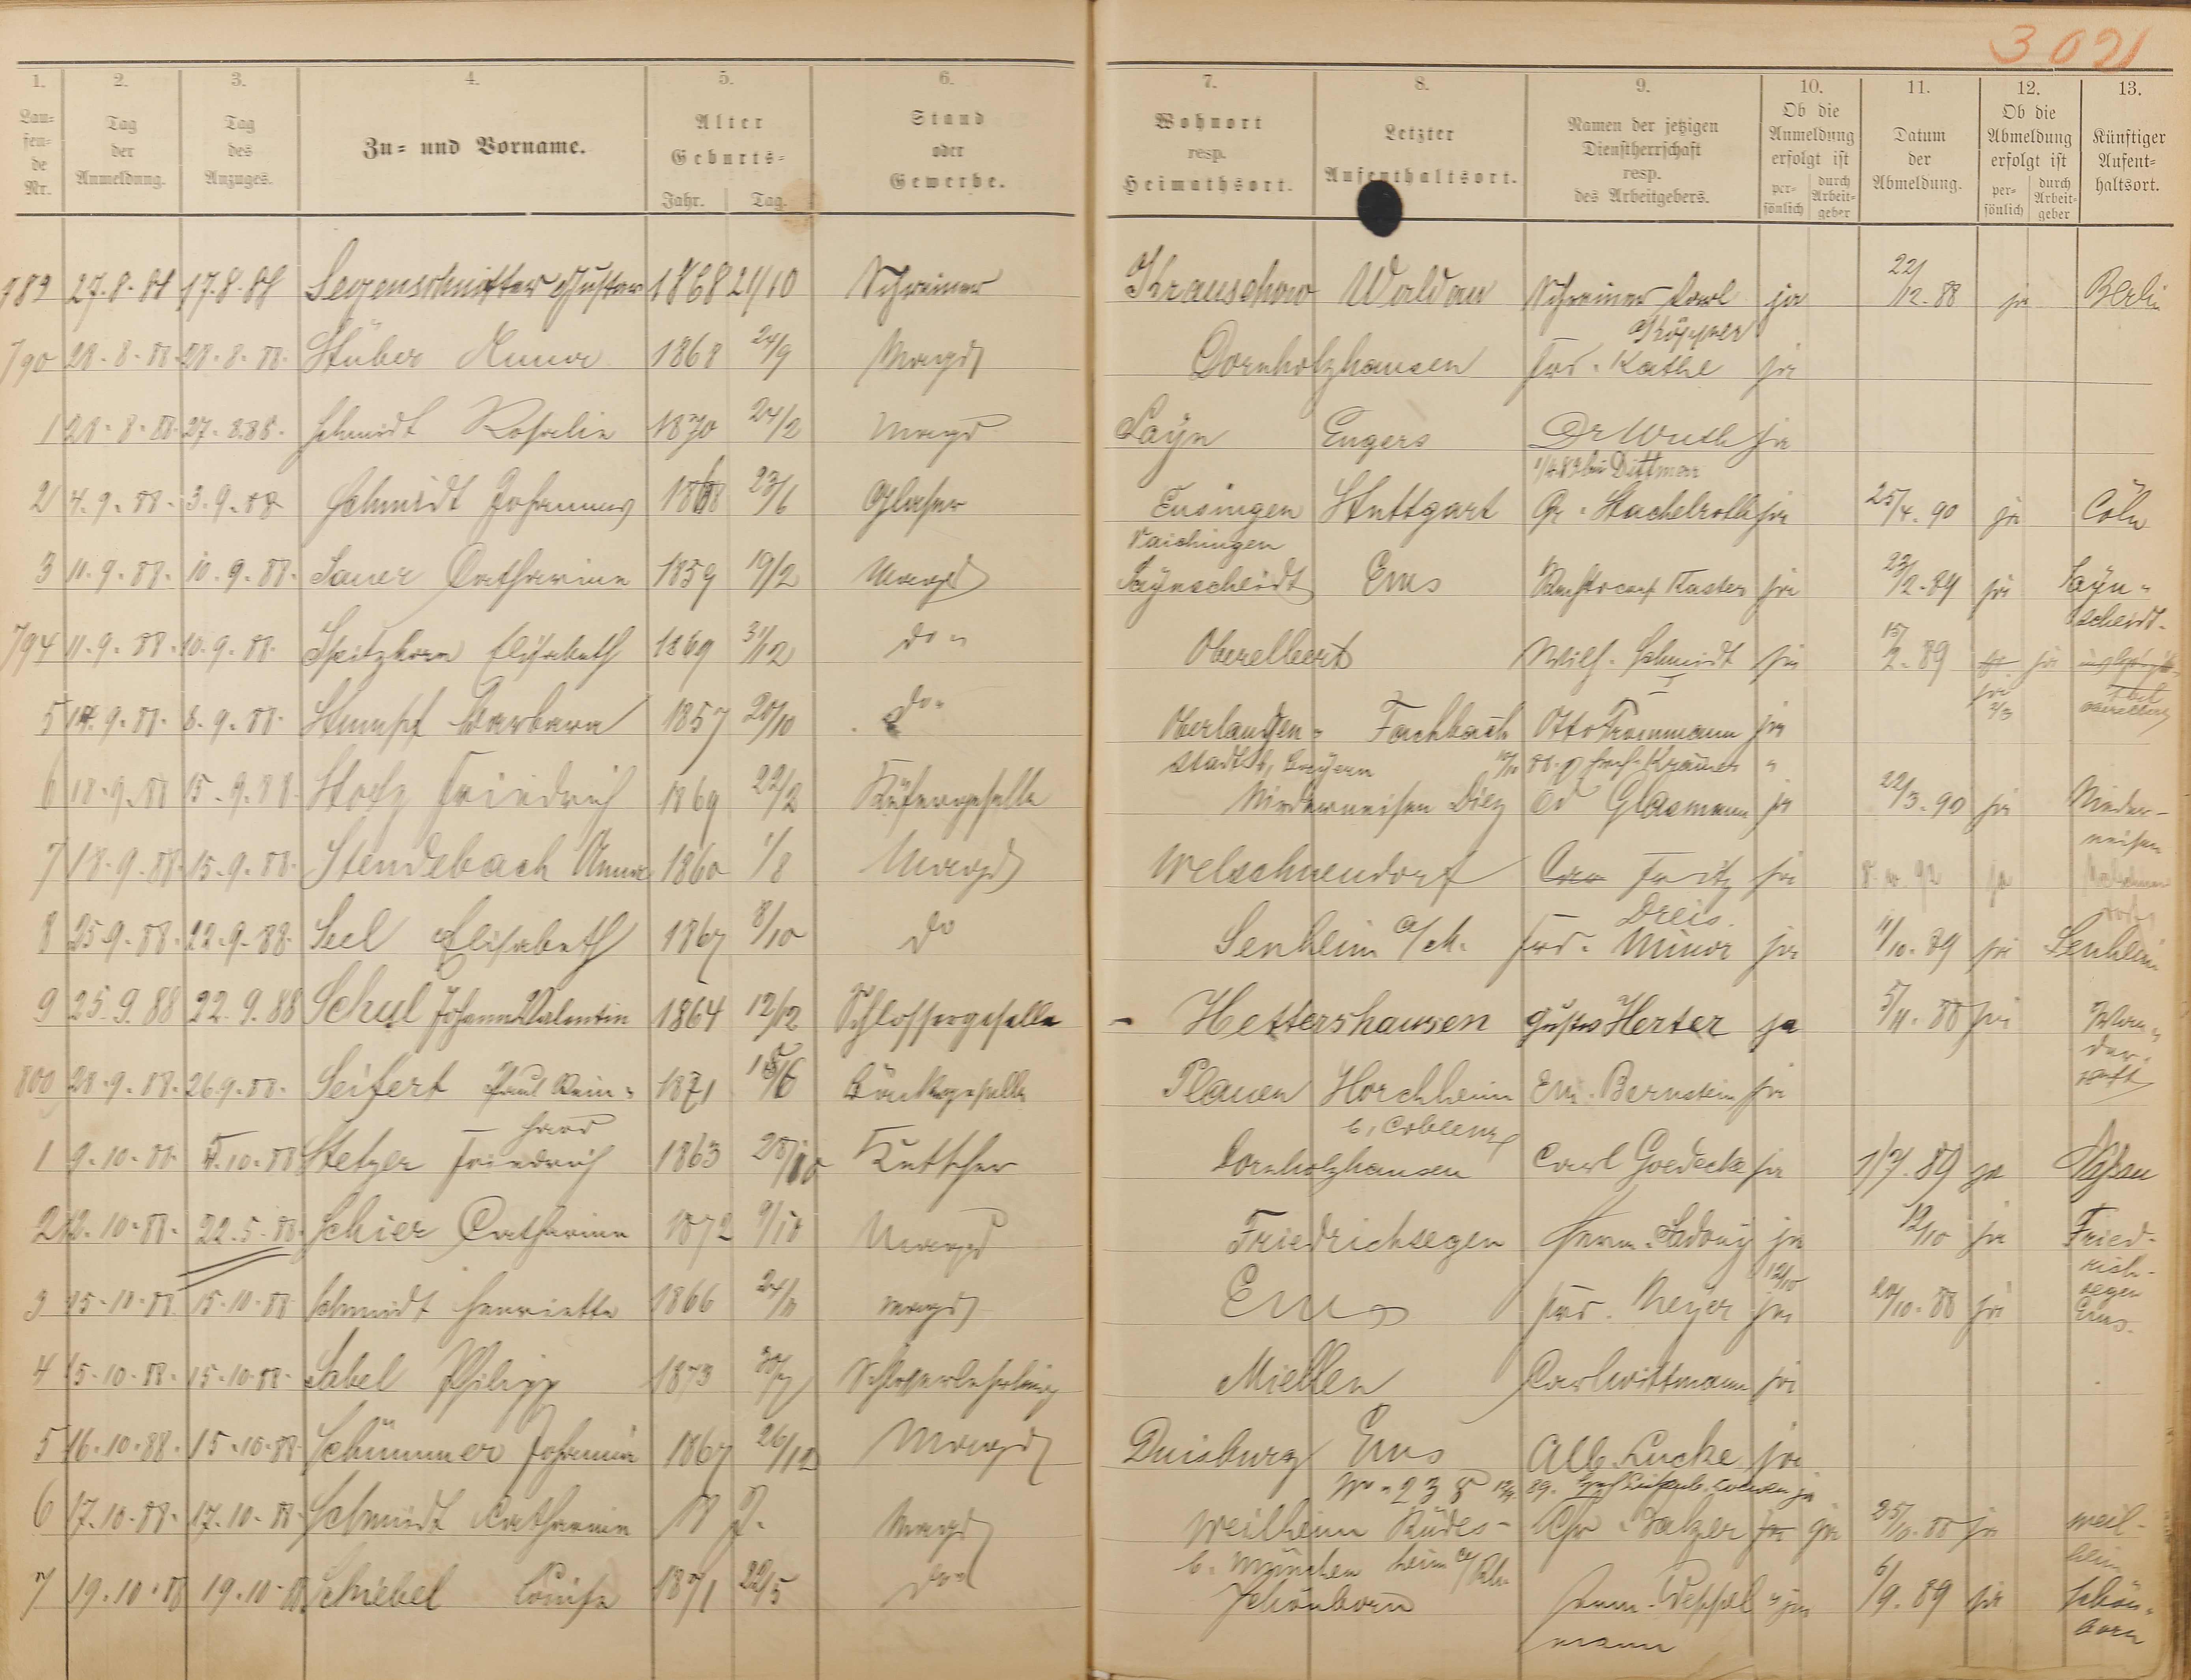 3021
1. 2. 3. 4. 5. 6. 7. 8. 9. 10. 11. 12. 13.
Laufende Nr. Tag der Anmeldung. Tag des Anzuges. Zu- und Vorname. Alter Geburts- Jahr. Tag. Stand oder Gewerbe. Wohnort resp. Heimathsort. Letzter Aufenthaltsort. Namen der jetzigen Dienstherrschaft resp. des Arbeitgebers. Ob die Anmeldung erfolgt ist persönlich durch Arbeitgeber Datum der Abmeldung. Ob die Abmeldung erfolgt ist persönlich durch Arbeitgeber Künftiger Aufenthaltsort.
789 27.8.88 17.8.88 Segenschnitter Gustav 1868 21/10 Schreiner Krauschow Waldau Schreiner Carl ja 22/12.88 ja Berlin
790 28.8.88. 28.8.88. Stüber Anna 1868 24/9 Magd Dornholzhausen Frd. Kathe ja
1 28.8.88. 27.8.88. Schmidt Rosalie 1870 24/2 Magd Sayn Engers Dr Wuth ja
Dittmar
2 4.9.88. 3.9.88 Schmidt Johannes 1868 23/6 Glaser Ensingen Stuttgart Gr. Stachelroth ja 25/4.90 ja Cöln
Vaichingen
3 11.9.88. 10.9.88. Sauer Catharine 1859 19/2 Magd Saynscheidt Ems Kaster ja 23/2.89 ja Sayn-
scheidt.
794 11.9.88. 10.9.88. Spitzhorn Elisabeth 1869 31/12 do Oberelbert Wilh. Schmidt ja 15/2.89 ja
Oberelbert
5 14.9.88. 8.9.88. Stumpf Barbara 1857 20/10 do. Fachbach Otto Trommann ja
stadt b, Bayern Krämer "
6 18.9.88 15.9.88. Stotz Friedrich 1869 22/2 Küfergeselle Niederneisen Diez Ad Glasmann ja 22/3.90 ja Nieder-
neisen
7 18.9.88. 15.9.88. Stendebach Anna 1860 1/8 Magd Welschneudorf Fritz ja 8.10.92 ja
Dreis.
8 25.9.88. 22.9.88. Seel Elisabeth 1867 8/10 do Senheim a/M. Frd. Minor ja 11/10.89 ja Senheim
9 25.9.88 22.9.88 Schul Johann Valentin 1864 12/12 Schlossergeselle Hettershausen Gustav Herter ja 5/11.88 ja Wan-
der-
schaft
800 28.9.88. 26.9.88. Seifert Paul Rein- 1871 Plauen Horchheim Em. Bernstein ja
hard b, Coblenz
1 9.10.88. 4.10.88 Stetzer Friedrich 1863 28/10 Kutscher Dornholzhausen Carl Goedecke ja 1/7.89 ja Nassau
2 12.10.88. 22.5.88. Schier Catharine 1872 9/10 Magd Friedrichsegen Herm. Ladony ja 12/10 ja Fried-
richs-
segen
3 15.10.88. 15.10.88. Schmidt Henriette 1866 Magd Ems Frd. Meyer ja 20/10.88 ja Ems.
4 15.10.88. 15.10.88. Sabel Philipp 1873 30/7 Schlosserlehrling Miellen Carl Wittmann ja
5 16.10.88. 15.10.88. Schümmer Johanna 1867 26/12 Magd Duisburg Ems Alb. Lucke ja
6 17.10.88. 17.10.88. Schmidt Catharina Magd Weilheim Rüdes- Chr. Balzer ja ja 25/10.88 ja Weil-
b. München heim a/Rh. heim
7 19.10.88 19.10.88 Schiebel Louise 1871 22/5 do Schönborn Herm. Deppel- ja 6/9.89 ja Schön-
mann born